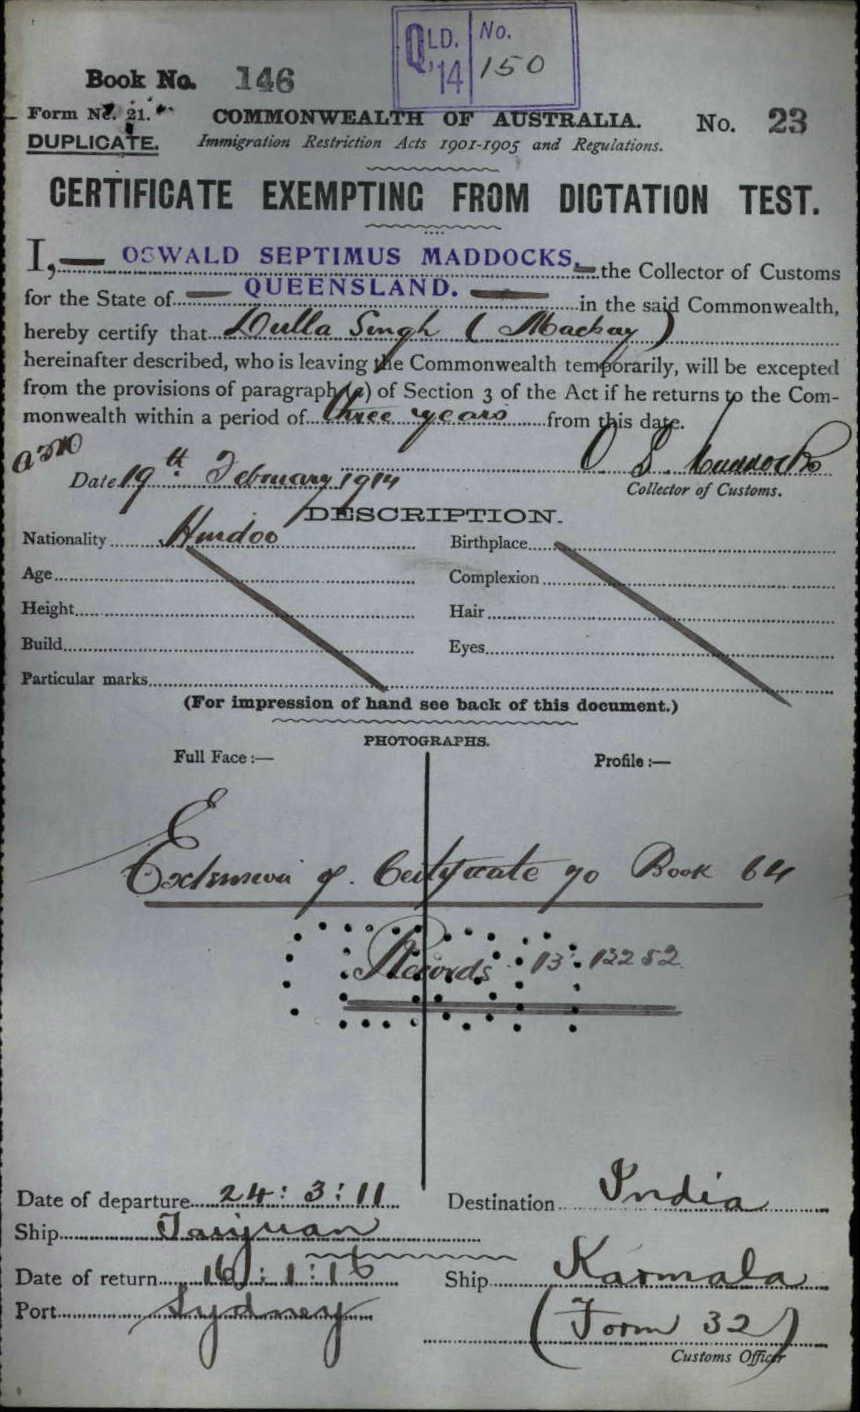 QLD. '14 No. 150
Book No. 146
Form No. 21.
COMMONWEALTH OF AUSTRALIA. No. 23
DUPLICATE. Immigration Restriction Acts 1901-1905 and Regulations.
CERTIFICATE EXEMPTING FROM DICTATION TEST.
I, OSWALD SEPTIMUS MADDOCKS, the Collector of Customs
for the State of QUEENSLAND. in the said Commonwealth,
hereby certify that Dulla Singh (Mackay)
hereinafter described, who is leaving the Commonwealth temporarily, will be excepted
from the provisions of paragraph (a) of Section 3 of the Act if he returns to the Com-
monwealth within a period of three years from this date.
O S Maddocks
Date 19th February 1914
Collector of Customs.
DESCRIPTION.
Nationality Hindoo Birthplace
Age Complexion
Height Hair
Build Eyes
Particular marks
(For impression of hand see back of this document.)
PHOTOGRAPHS.
Full Face :— Profile :—
Extension of Certificate 70 Book 64
Records 13: 13252
Date of departure 24: 3: 11 Destination India
Ship Taiyuan
Date of return 16: 1: 16 Ship Karmala
Port Sydney (Form 32)
Customs Officer